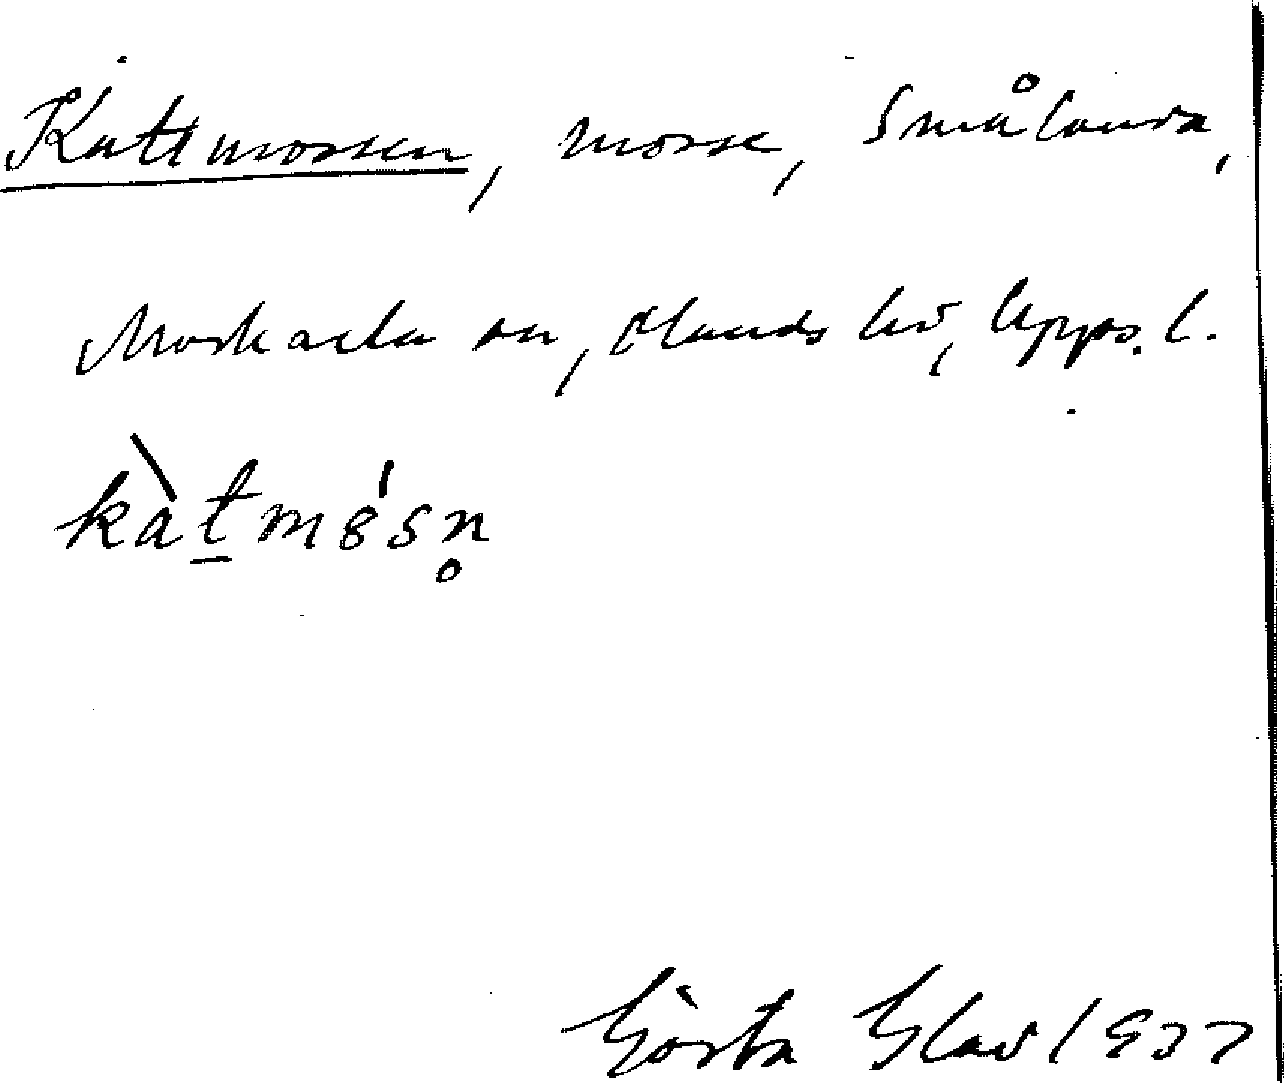 Kattmossen, mosse, Smålanda,
Morkarla sn, Olands hd, Upps. l.
kàt̠mósn̥
Gösta Glad 1937